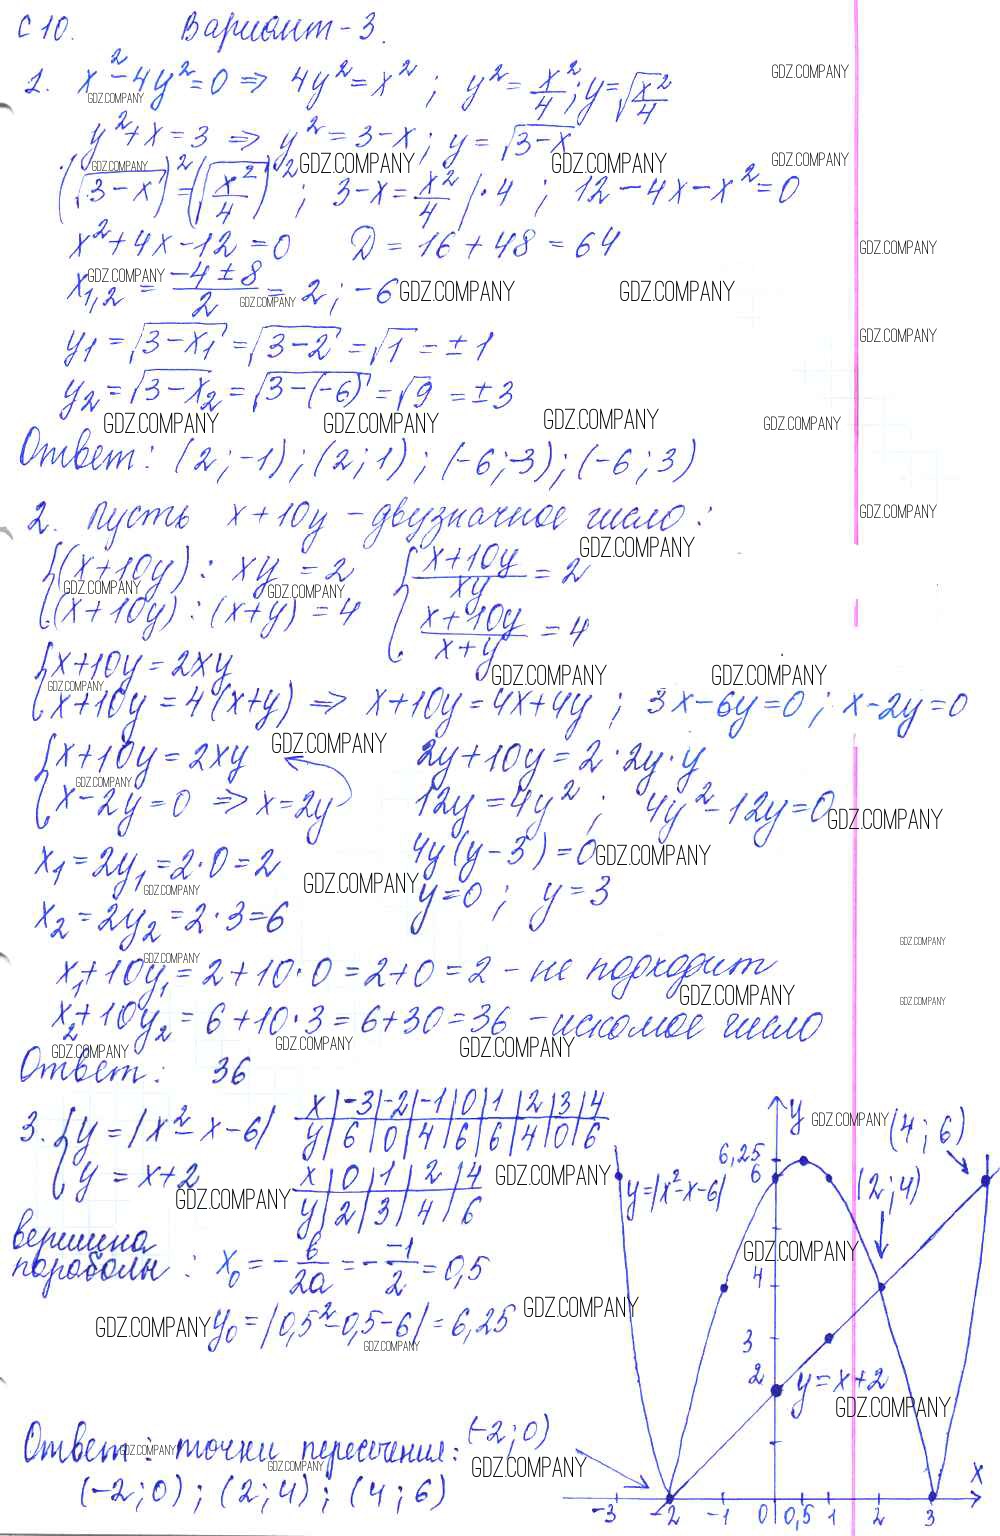 С 10. Вариант - 3.
1. x² - 4y² = 0 => 4y² = x² ; y² = x²/4 ; y = √(x²/4)
y² + x = 3 => y² = 3 - x ; y = √(3 - x)
(√(3 - x))² = (√(x²/4))² ; 3 - x = x²/4 | · 4 ; 12 - 4x - x² = 0
x² + 4x - 12 = 0 D = 16 + 48 = 64
x1,2 = (-4 ± 8)/2 = 2 ; -6
y1 = √(3 - x1) = √(3 - 2) = √1 = ± 1
y2 = √(3 - x2) = √(3 - (-6)) = √9 = ± 3
Ответ: (2 ; -1) ; (2 ; 1) ; (-6 ; -3) ; (-6 ; 3)
2. Пусть x + 10y - двузначное число :
{(x + 10y) : xy = 2 {(x + 10y)/xy = 2
{(x + 10y) : (x + y) = 4 {(x + 10y)/(x + y) = 4
{x + 10y = 2xy
{x + 10y = 4(x + y) => x + 10y = 4x + 4y ; 3x - 6y = 0 ; x - 2y = 0
{x + 10y = 2xy 2y + 10y = 2 · 2y · y
{x - 2y = 0 => x = 2y 12y = 4y² ; 4y² - 12y = 0
x1 = 2y1 = 2 · 0 = 2 4y(y - 3) = 0
y = 0 ; y = 3
x2 = 2y2 = 2 · 3 = 6
x1 + 10y1 = 2 + 10 · 0 = 2 + 0 = 2 - не подходит
x2 + 10y2 = 6 + 10 · 3 = 6 + 30 = 36 - искомое число
Ответ: 36
3. {y = |x² - x - 6| x | -3 | -2 | -1 | 0 | 1 | 2 | 3 | 4
y | 6 | 0 | 4 | 6 | 6 | 4 | 0 | 6
{y = x + 2 x | 0 | 1 | 2 | 4
y | 2 | 3 | 4 | 6
вершина
параболы : x0 = - b/2a = - -1/2 = 0,5
y0 = |0,5² - 0,5 - 6| = 6,25
Ответ: точки пересечения:
(-2 ; 0) ; (2 ; 4) ; (4 ; 6)
y
(4 ; 6)
6,25
6
y = |x² - x - 6|
(2 ; 4)
4
3
2
y = x + 2
(-2 ; 0)
x
-3 -2 -1 0 0,5 1 2 3
GDZ.COMPANY